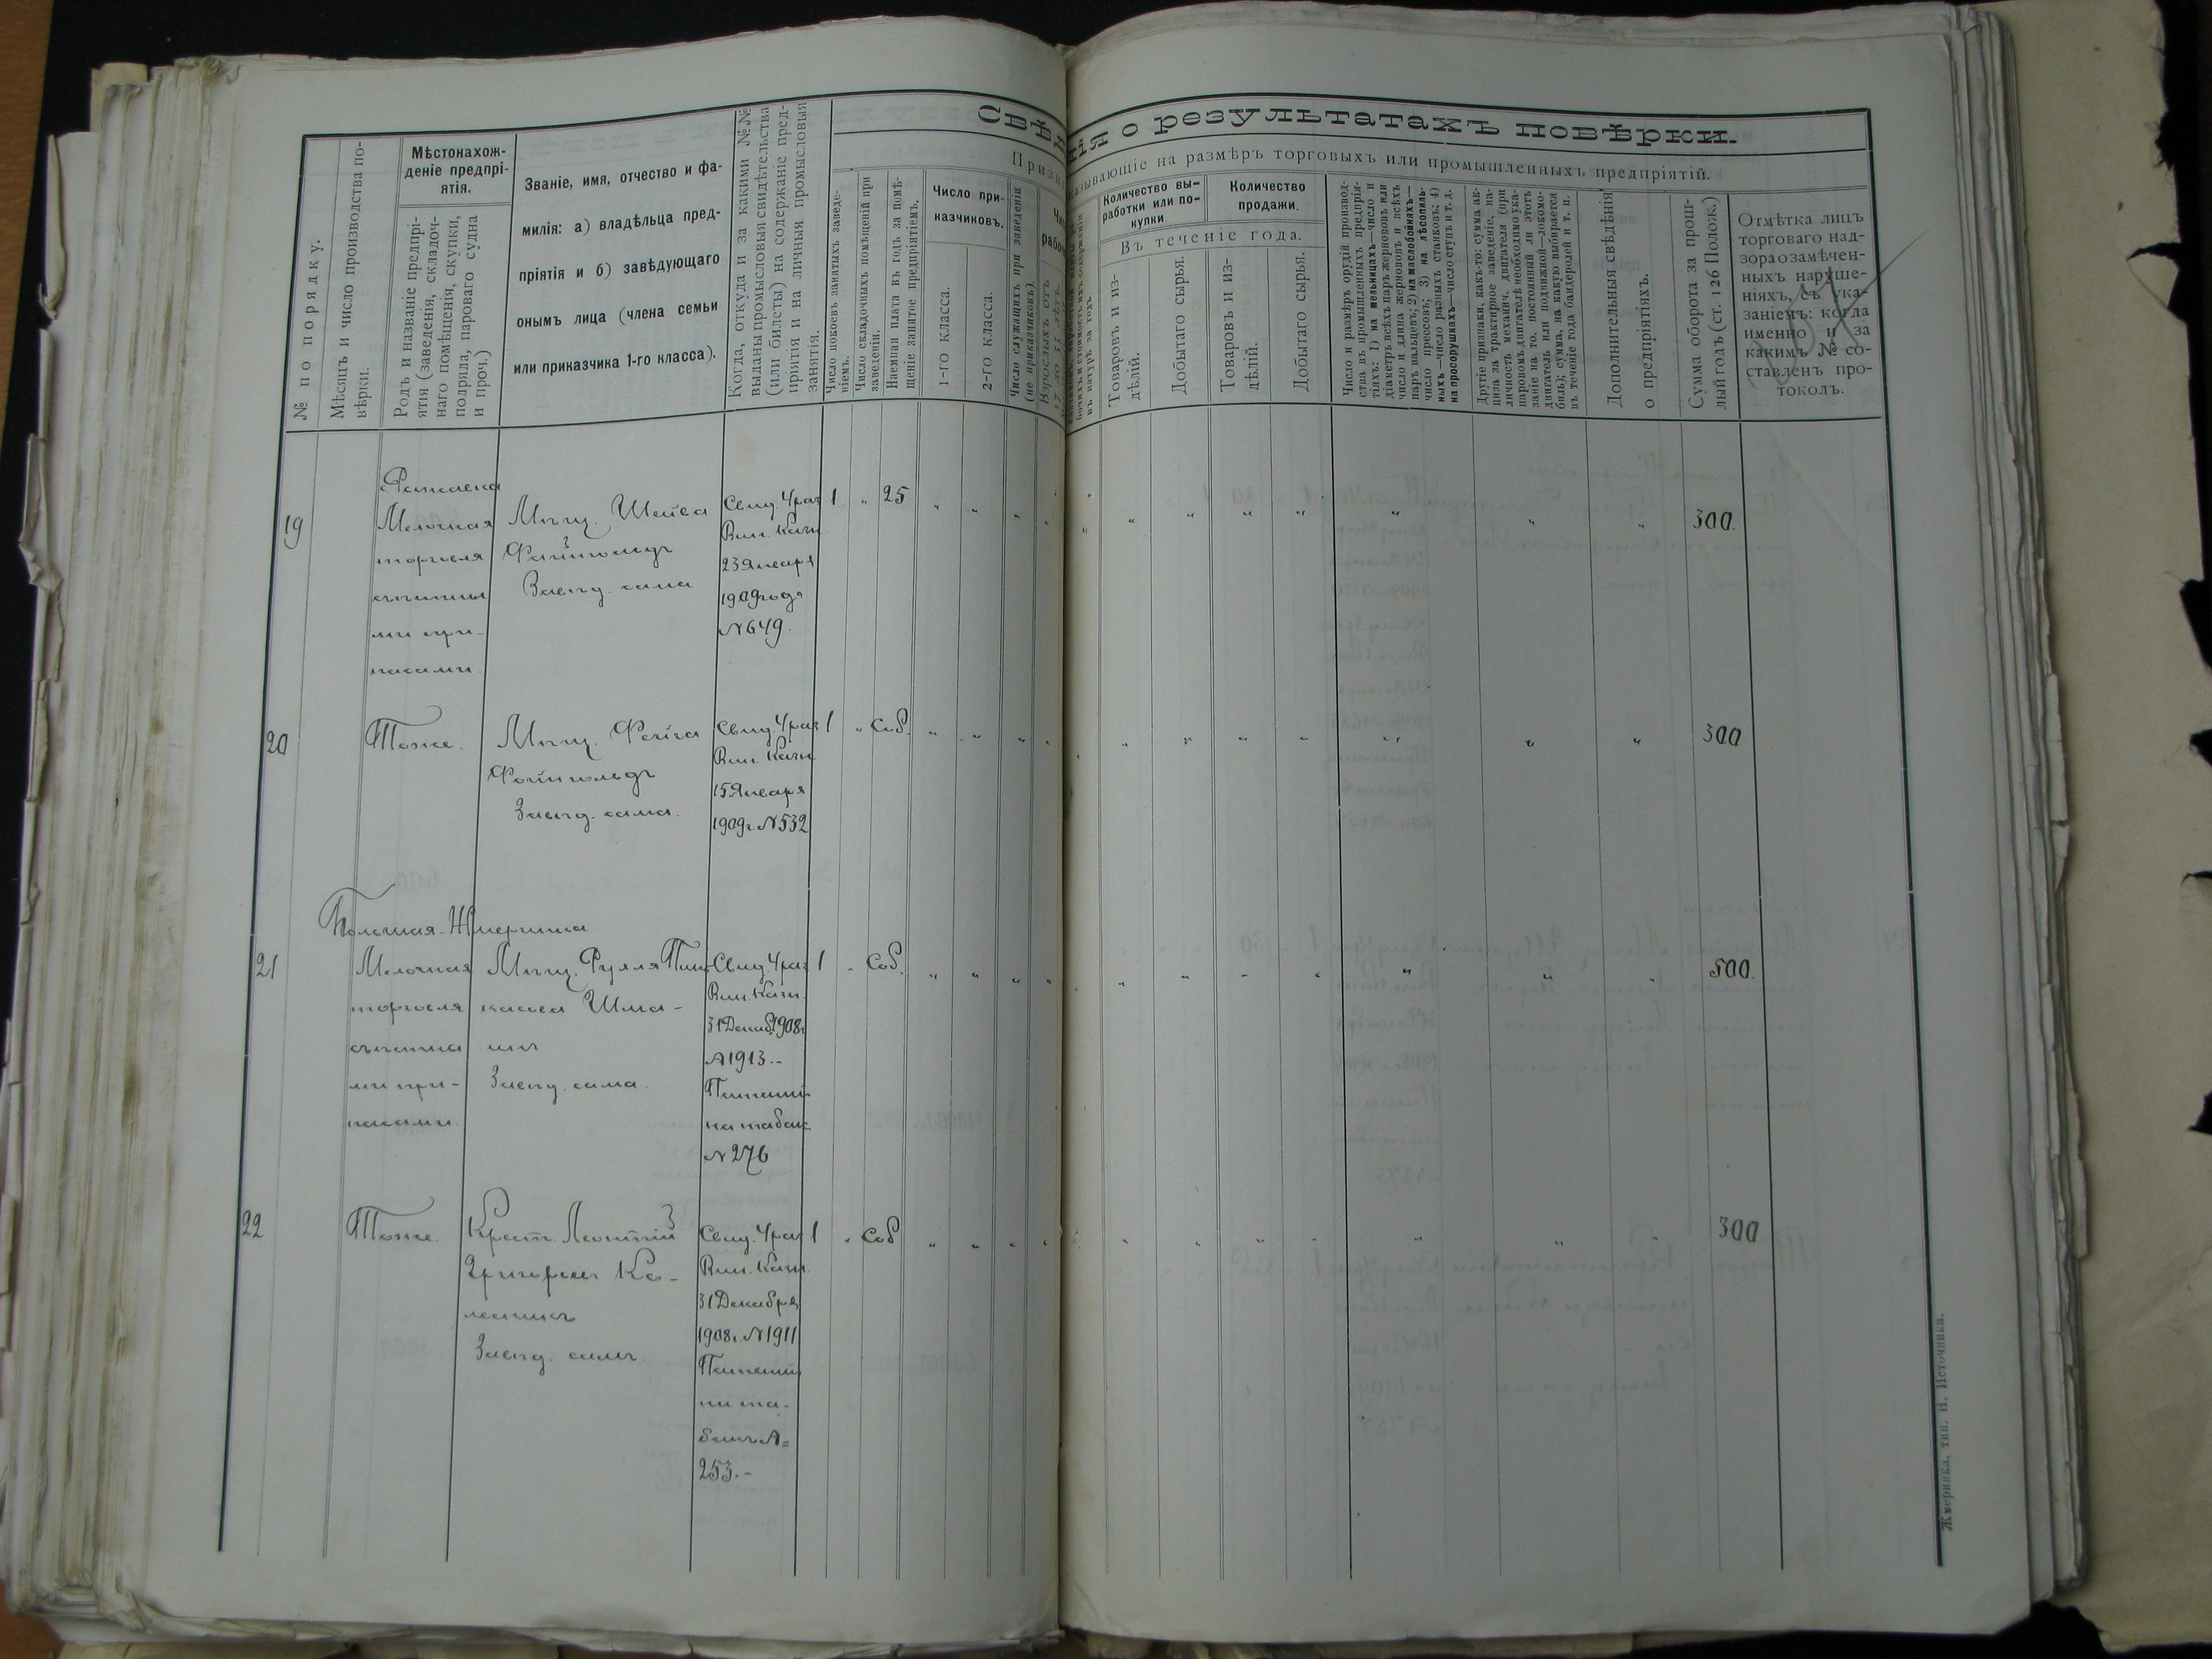 Свѣдѣнія о результатахъ повѣрки.
Признаки, указывающіе на размѣръ торговыхъ или промышленныхъ предпріятій.
№ по порядку.
Мѣсяцъ и число производства по-
вѣрки.
Мѣстонахож-
деніе предпрі-
ятія.
Родъ и названіе предпрі-
ятія (заведенія, складоч-
наго помѣщенія, скупки,
подряда, парового судна
и проч.)
Званіе, имя, отчество и фа-
милія: а) владѣльца пред-
пріятія и б) завѣдующаго
онымъ лица (члена семьи
или приказчика 1-го класса).
Когда, откуда и за какими №№
выданы промысловыя свидѣтельства
(или билеты) на содержаніе пред-
пріятія и на личныя промысловыя
занятія.
Число покоевъ занятыхъ заведе-
ніемъ.
Число складочныхъ помѣщеній при
заведеніи.
Наемная плата въ годъ за помѣ-
щеніе занятое предпріятіемъ.
Число при-
казчиковъ.
1-го класса.
2-го класса.
Число служащихъ при заведеніи
(не приказчиковъ).
Взрослыхъ отъ
17 до 55 лѣтъ.
въ натурѣ за годъ.
Количество вы-
работки или по-
купки
Количество
продажи.
Въ теченіе года.
Товаровъ и из-
дѣлій.
Добытаго сырья.
Товаровъ и из-
дѣлій.
Добытаго сырья.
Число и размѣръ орудій производ-
ства въ промышленныхъ предпрія-
тіяхъ: 1) на мельницахъ—число и
діаметръ всѣхъ паръ жернововъ или
число и длина жернововъ и всѣхъ
паръ вальцевъ; 2) на маслобойняхъ—
число прессовъ; 3) на лѣсопиль-
ныхъ—число разныхъ станковъ; 4)
на просорушкахъ—число ступъ и т. д.
Другіе признаки, какъ-то: сумма ак-
циза за трактирное заведеніе, на-
личность механич. двигателя (при
паровомъ двигателѣ необходимо ука-
заніе на то, постоянный ли этотъ
двигатель или подвижной—локомо-
биль); сумма, на какую выбирается
въ теченіе года бандеролей и т. п.
Дополнительныя свѣдѣнія
о предпріятіяхъ.
Сумма оборота за прош-
лый годъ (ст. 126 Полож.)
Отмѣтка лицъ
торговаго над-
зора о замѣчен-
ныхъ наруше-
ніяхъ, съ ука-
заніемъ: когда
именно и за
какимъ № со-
ставленъ про-
токолъ.
19
Мелочная
торговля
съѣстны
ми при-
пасами.
Мѣщ. Шейва
Завѣд. сама
Свид. 4 раз
Вин. Казн
23 Января
1909 года
№ 649.
1 " 25
300.
20
Тоже.
Мѣщ. Фейга
Фойнгольдъ
Завѣд. сама.
Свид. 4 раз
Вин Казн
15 Января
1909 г. № 532
1 " Соб.
300
Потошная-Жмеринка
21
Мелочная
торговля
съѣстны
ми при-
пасами.
Мѣщ. Рухля Пин-
хасова Шма-
Завѣд. сама.
Свид. 4 раз
Вин. Казн.
31 Декаб. 1908 г.
№ 1913.-
Патентъ
на табак
№ 276
1 " Соб.
500.
22
Тоже.
Крест. Леонтій
Григорьев Ко-
лесникъ
Завѣд. самъ.
Свид. 4 раз
Вин. Казн.
31 Декабря
1908 г. № 1911
Патентъ
на та-
бакъ №=
253.-
1 " Соб
300
Жмеринка, тип. Н. Источника.